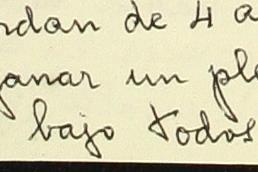 rdan de 4 a
ganar un pl
bajo todos